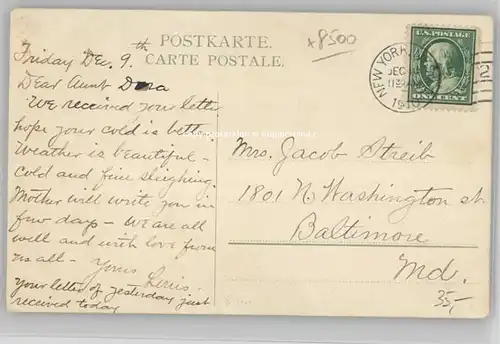 POSTKARTE.
CARTE POSTALE.
x8500
U.S. POSTAGE
ONE CENT
NEW YORK
DEC
1910
Friday Dec. 9th
Dear Aunt Dora
We received your letter
hope your cold is better.
Weather is beautiful -
cold and fine sleighing.
Mother will write you in
few days - We are all
well and with love from
us all - Yours Louis.
Your letter of yesterday just
received today
Mrs. Jacob Streib
1801 N. Washington St.
Baltimore
Md.
35,-